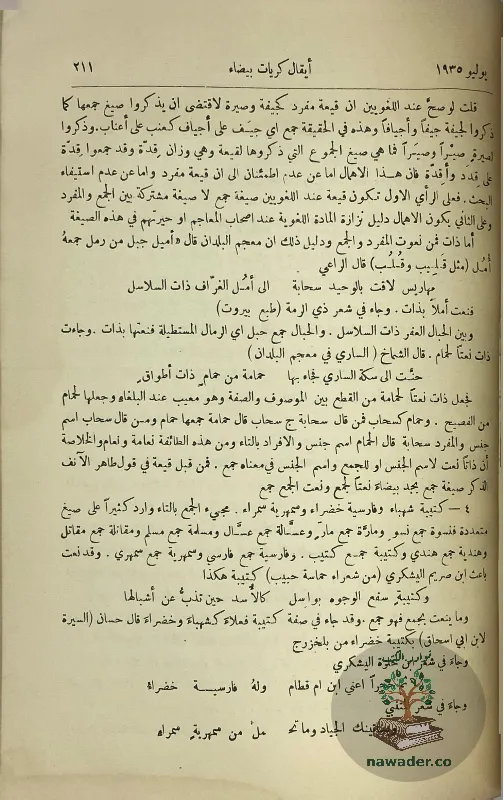 يوليو ١٩٣٥ أيقال كريات بيضاء ٢١١
قلت لو صحَّ عند اللغويين ان قيعة مفرد كجيفة وصيرة لاقتضى ان يذكروا صيغ جمعها كما
ذكروا لجيفة جيفاً وأجيافاً وهذه في الحقيقة جمع اي جيَف على أجياف كعنب على أعناب. وذكروا
لصيرة صيْراً وصِيَراً فما هي صيغ الجموع التي ذكروها لقيعة وهي وزان قِدَّة وقد جمعوا قِدة
على قِدَد وأقِدة فان هذا الاهمال اما عن عدم اطمئنان الى ان قيعة مفرد واما عن عدم استيفاء
البحث. فعلى الرأي الاول تكون قيعة عند اللغويين صيغة جمع لا صيغة مشتركة بين الجمع والمفرد
وعلى الثاني يكون الاهمال دليل نزازة المادة اللغوية عند اصحاب المعاجم او حيرتهم في هذه الصيغة
أما ذات فمن نعوت المفرد والجمع ودليل ذلك ان معجم البلدان قال «أميل جبل من رمل جمعهُ
أُمُل (مثل قَلِيب وقُلُب) قال الراعي
مهاريس لاقت بالوحيد سحابة الى أُمُل الغرّاف ذات السلاسل
فنعت أملاً بذات. وجاء في شعر ذي الرمة (طبع بيروت)
وبين الحبال العفر ذات السلاسل. والحبال جمع حبل اي الرمال المستطيلة فنعتها بذات. وجاءت
ذات نعتاً لحمام. قال الشماخ (الساري في معجم البلدان)
حنَّت الى سكة الساري تجاوبها حمامة من حمامٍ ذات أطواق
فجعل ذات نعتاً لحمامة من القطع بين الموصوف والصفة وهو معيب عند البلغاء وجعلها لحمام
من الفصيح. وحمام كسحاب فمن قال سحابة ج سحاب قال حمامة جمعها حمام ومن قال سحاب اسم
جنس والمفرد سحابة قال الحمام اسم جنس والافراد بالتاء ومن هذه الطائفة نعامة ونعام والخلاصة
أن ذاتاً نعت لاسم الجنس او للجمع واسم الجنس في معناه جمع. فمن قبل قيعة في قول طاهر الآنف
الذكر صيغة جمع يجد بيضاءَ نعتاً لجمع ونعت الجمع جمع
٤ — كتيبة شهباء وفارسية خضراء وسمهرية سمراء. مجيء الجمع بالتاء وارد كثيراً على صيغ
متعددة فنسوة جمع نسو ومارَّة جمع مارّ وعسَّالة جمع عسَّال ومسلمة جمع مسلم ومقاتلة جمع مقاتل
وهندية جمع هندي وكتيبة جمع كتيب. وفارسية جمع فارسي وسمهرية جمع سمهري. وقد نعت
باعث ابن صريم اليشكري (من شعراء حماسة حبيب) كتيبة هكذا
وكتيبةٍ سفع الوجوه بواسل كالأُسد حين تذبُّ عن أشبالها
وما ينعت بجمع فهو جمع. وقد جاء في صفة كتيبة فعلاء كشهباء وخضراء قال حسان (السيرة
لابن ابي اسحاق) بكتيبة خضراء من بلخزرج
وجاءَ في شعر ابن حلزة اليشكري
اعني ابن ام قطام ولهُ فارسيـــة خضراءُ
وجاء في شعر
الجياد وما تحـ مل من سمهريةٍ سمراء
نوادر الكتب
nawader.co